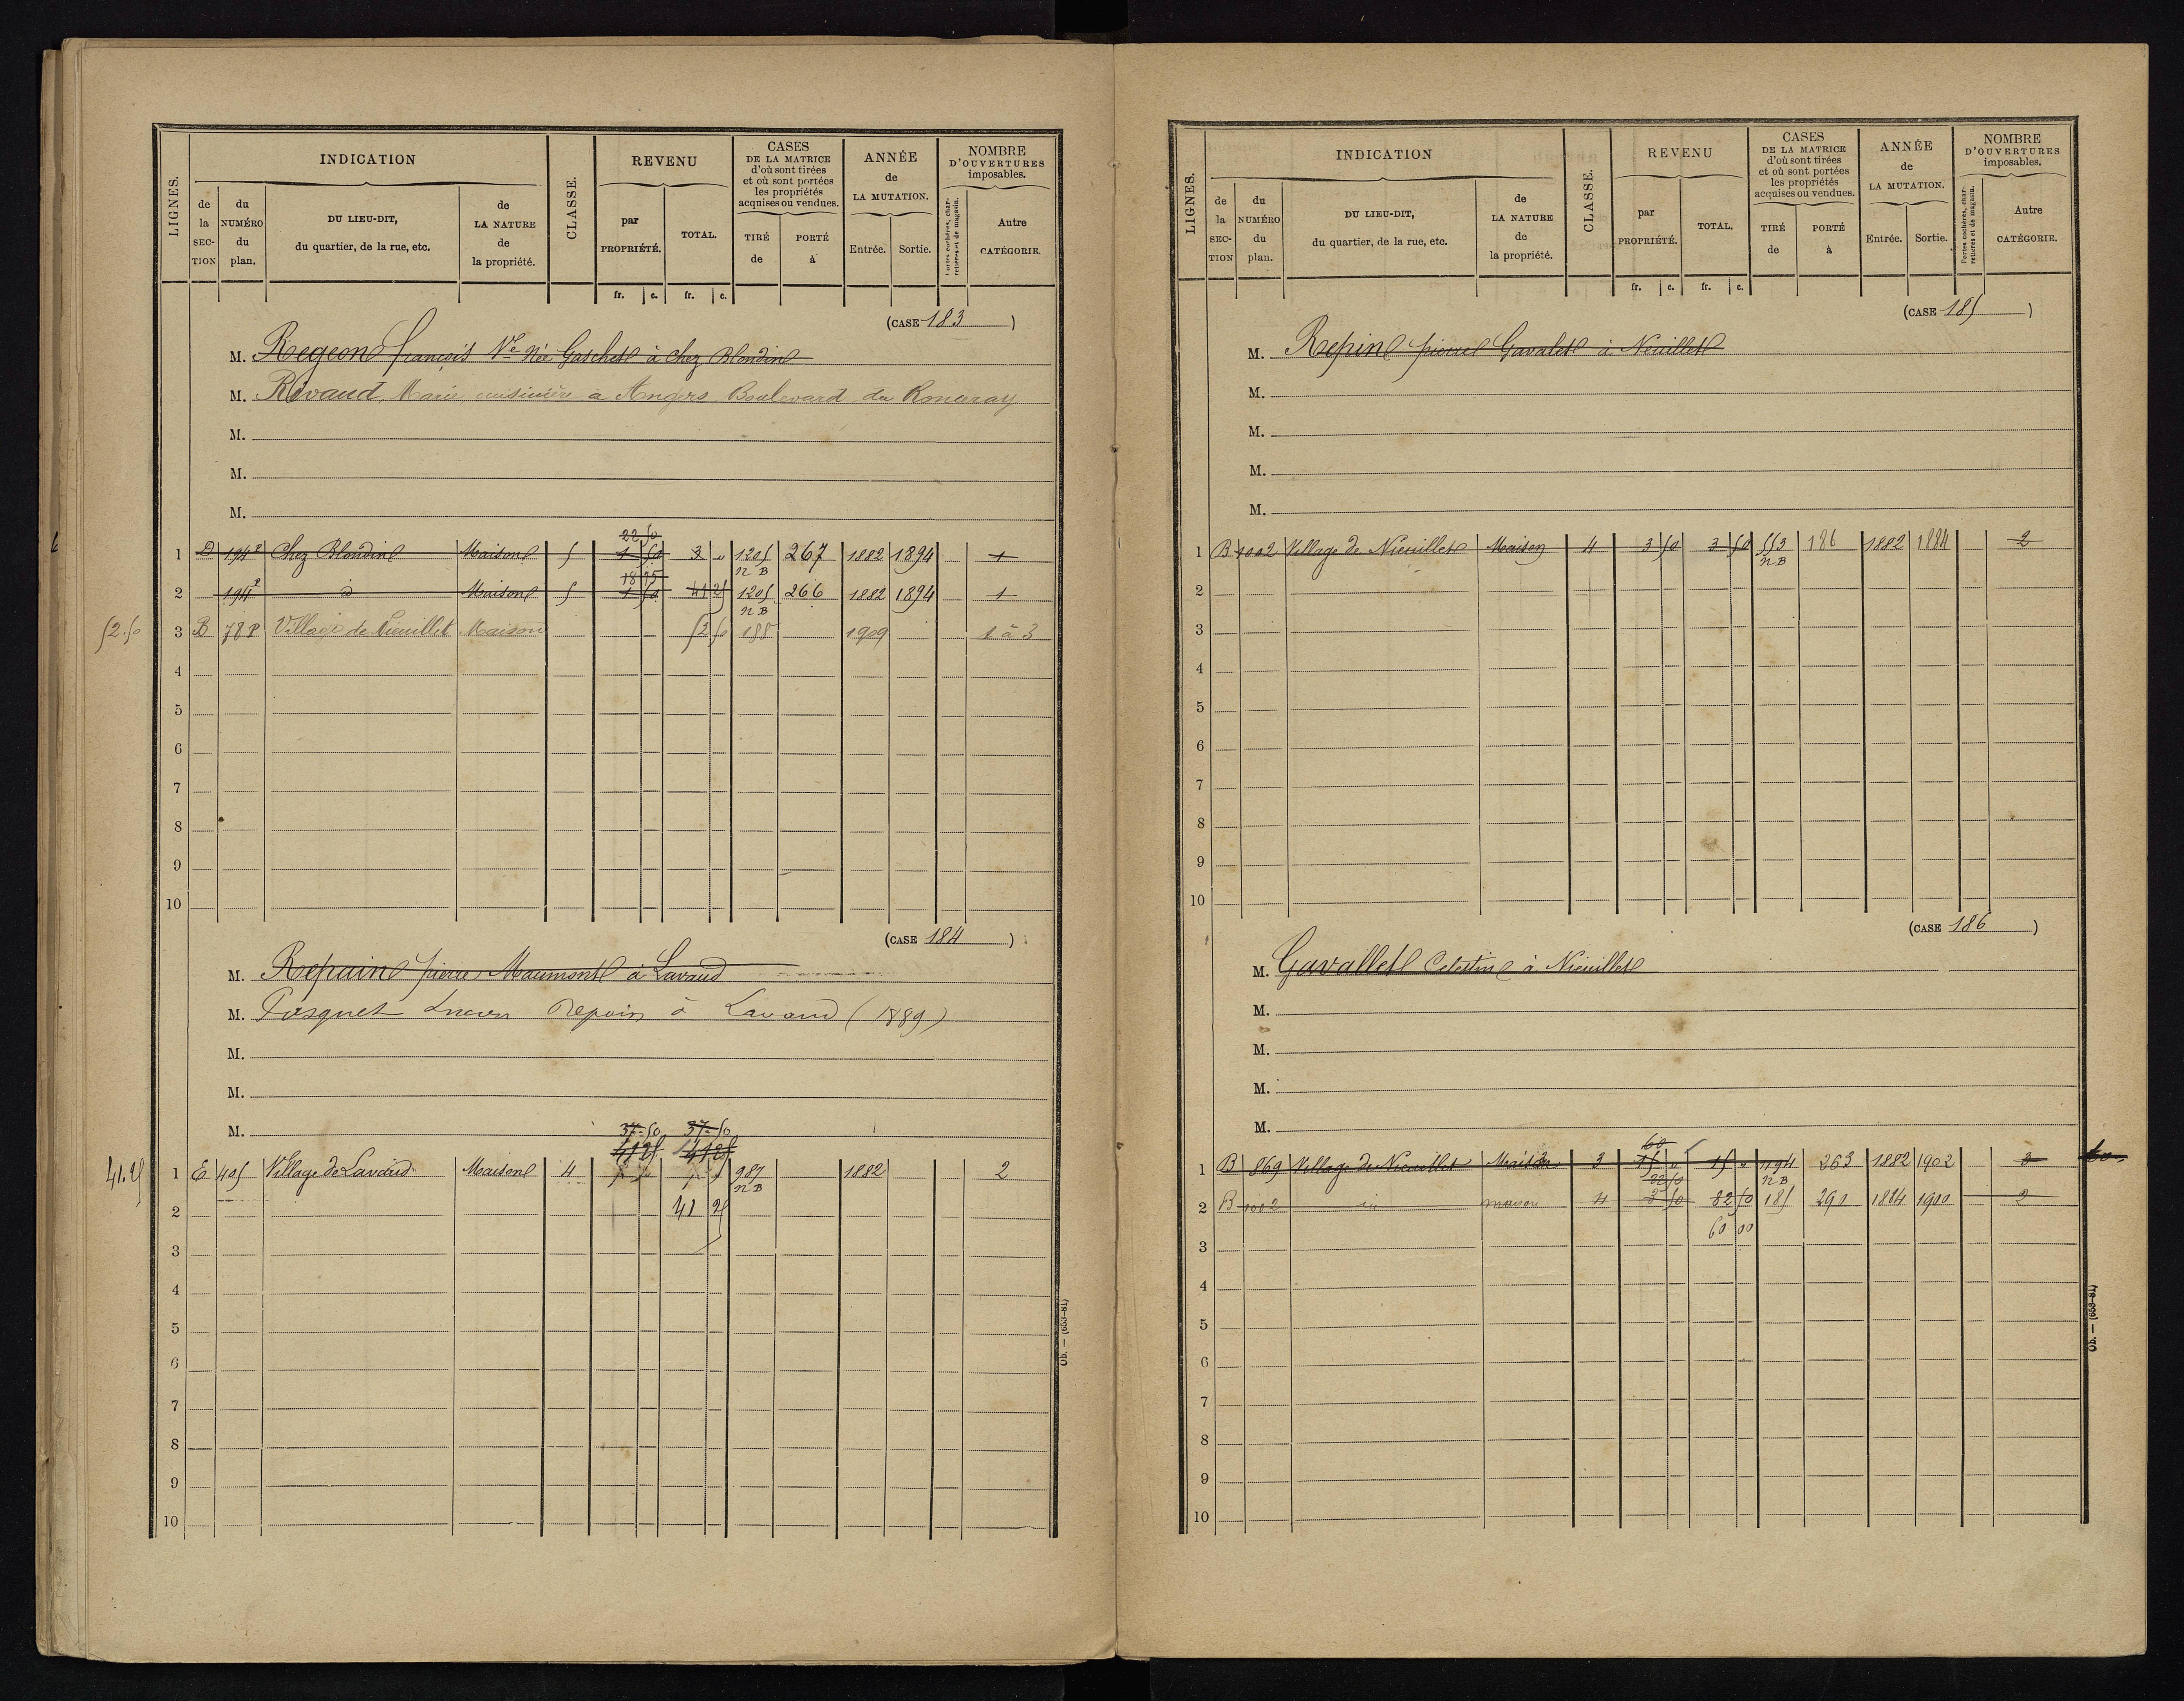 LIGNES.
INDICATION
de la SECTION
du NUMÉRO du plan.
DU LIEU-DIT, du quartier, de la rue, etc.
de LA NATURE de la propriété.
CLASSE.
REVENU
par PROPRIÉTÉ.
TOTAL.
CASES DE LA MATRICE d'où sont tirées et où sont portées les propriétés acquises ou vendues.
TIRÉ de
PORTÉ à
ANNÉE de LA MUTATION.
Entrée.
Sortie.
NOMBRE D'OUVERTURES imposables.
Portes cochères, charretières et de magasin.
Autre CATÉGORIE.
fr. c. fr. c.
(CASE 183)
M. Regeon françois Ve Née Gaschet à chez Blondin
M. Rivaud, Marie, cuisinière à Angers Boulevard du Ronceray
M.
M.
M.
22 50
1 D 194P Chez Blondin Maison 5 1 50 3 " 1205 NB 267 1882 1894 1
18 75
2 194P d Maison 5 1 50 41 25 1205 NB 266 1882 1894 1
52.50 3 B 78P Village de Nieuillet Maison 52 50 188 1909 1 à 3
4
5
6
7
8
9
10
(CASE 184)
M. Repain pierre Maumont à Lavaud
M. Pasquet Lucien Repain à Lavaud (1889)
M.
M.
M.
37-50 37-50
41 25 41 25
41.25 1 E 405 Village de Lavaud Maison 4 987 NB 1882 2
2 41 25
3
4
5
6
7
8
9
10
Ob. — (653-81)
LIGNES.
INDICATION
de la SECTION
du NUMÉRO du plan.
DU LIEU-DIT, du quartier, de la rue, etc.
de LA NATURE de la propriété.
CLASSE.
REVENU
par PROPRIÉTÉ.
TOTAL.
CASES DE LA MATRICE d'où sont tirées et où sont portées les propriétés acquises ou vendues.
TIRÉ de
PORTÉ à
ANNÉE de LA MUTATION.
Entrée.
Sortie.
NOMBRE D'OUVERTURES imposables.
Portes cochères, charretières et de magasin.
Autre CATÉGORIE.
fr. c. fr. c.
(CASE 185)
M. Repin pierre Gavalet à Neuillet
M.
M.
M.
M.
1 B 1002 Village de Nieuillet Maison 4 3 50 3 50 553 NB 186 1882 1884 2
2
3
4
5
6
7
8
9
10
(CASE 186)
M. Gavallet Celestin à Nieuillet
M.
M.
M.
M.
60
1 B 869 Village de Nieuillet Maison 3 15 " 15 " 1194 NB 263 1882 1902 3 60
22 50
2 B 1002 id maison 4 3 50 82 50 185 290 1884 1910 2
60 00
3
4
5
6
7
8
9
10
Ob. — (653-81)